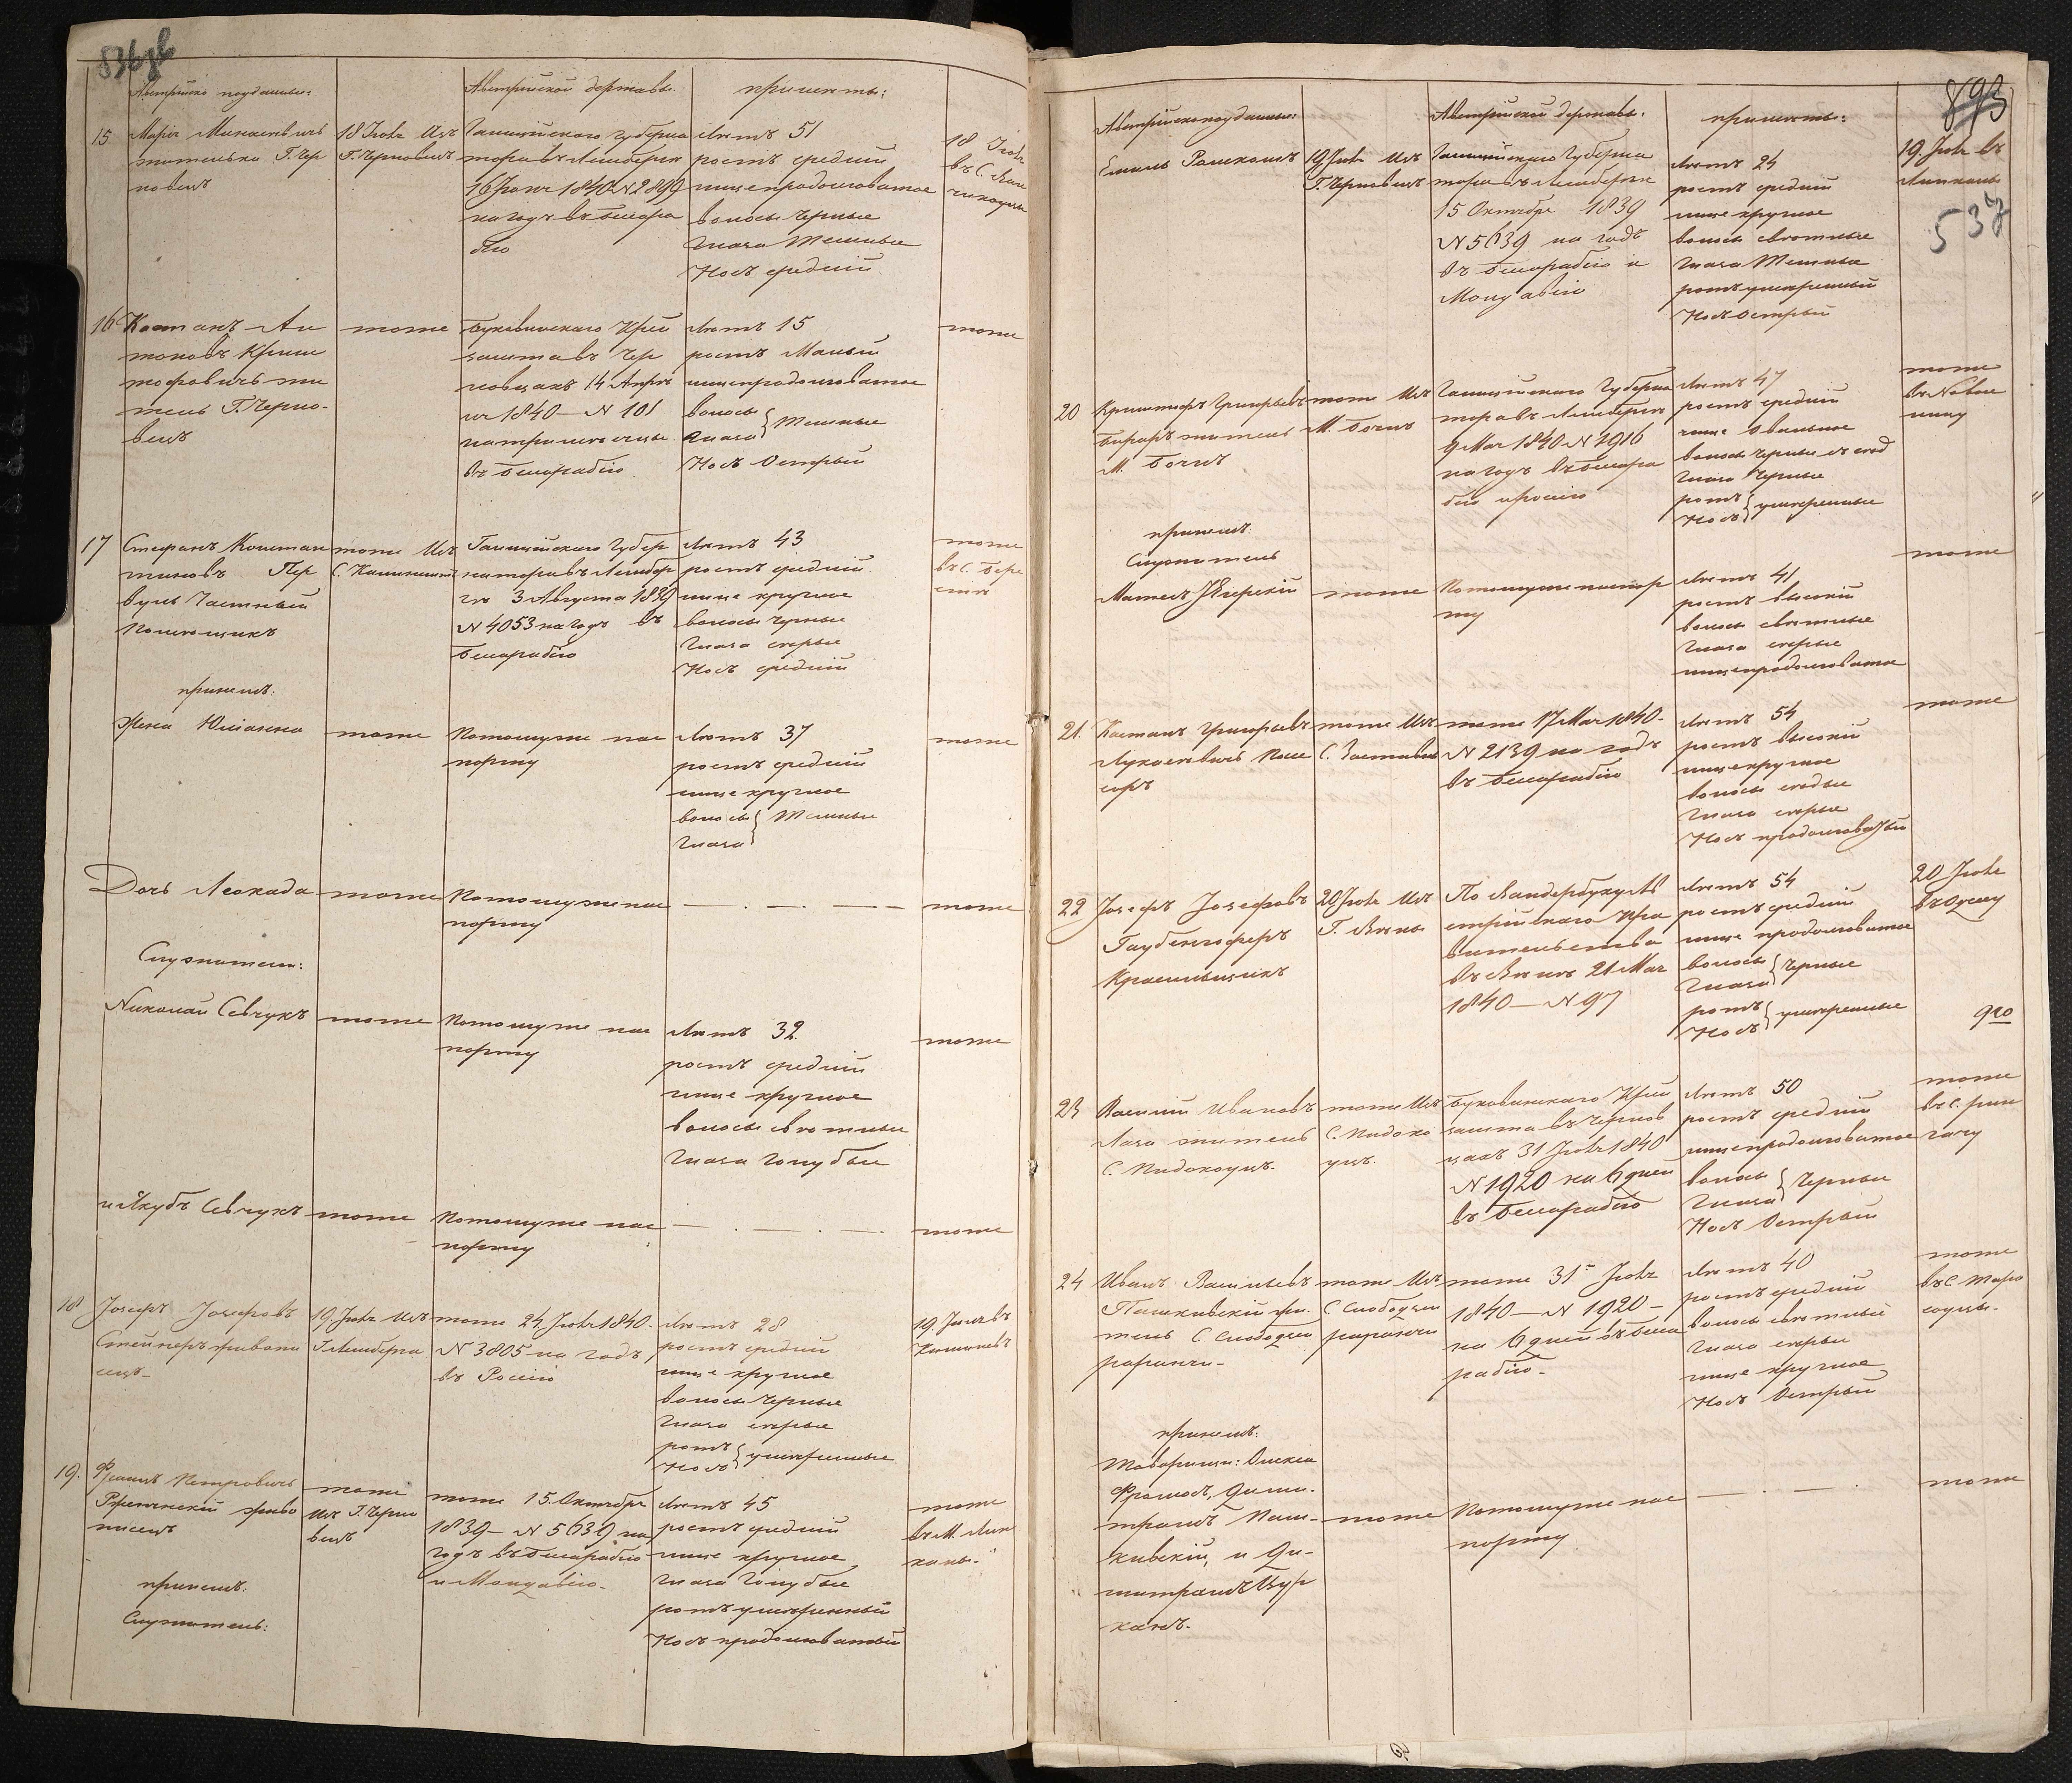 836 об
Австрийско подданные:
Австрийской державы.
приметы:
15 Марія Минасевичь
жителька Г. Чер
новецъ
18 Іюля Изъ
Г. Черновецъ
Галиційскаго губерна
тора въ Лемберге
16 Іюня 1840 N 2899
на годъ въ Бессара
бію
Летъ 51
ростъ средній
лице продолговатое
волосы Черные
Глаза Темные
Носъ средній
18 Іюля
въ С.
16 Каетанъ Ан
тоновъ Криш
тофовичь жи
тель Г. Черно-
вецъ
тоже
Буковинскаго Крей
замта въ Чер
новцахъ 14 Апре
ля 1840 — N 101
на три месяца
въ Бессарабію
Летъ 15
ростъ Малый
лице продолговатое
волосы
Глаза } Темные
Носъ Острый
тоже
17 Стефанъ Констан
тиновъ Пер
вуль Частный
Помещикъ
тоже Изъ
С.
Галиційскаго Губер
натора въ Лембер
ге 3 Августа 1839
N 4053 на годъ въ
Бессарабію
Летъ 43
ростъ средній
лице круглое
волосы Черные
Глаза серые
Носъ средній
тоже
въ С. Бере
стя
при немъ:
Жена Юліанна
тоже
Потомуже пас
порту
Летъ 37
ростъ средній
лице круглое
волосы
Глаза } Темные
тоже
Дочь Леокада
тоже
Потомуже пас
порту
— . — . — —
тоже
Служители:
Николай Севчукъ
тоже
Потомуже пас
порту
Летъ 32.
ростъ средній
лице круглое
волосы светлые
Глаза голубые
тоже
и Якубъ Севчукъ
тоже
Потомуже пас
порту
— . — . — . —
тоже
18 Іозефъ Іозефовъ
Стейнеръ
19. Іюля Изъ
Г. Лемберга
тоже 24 Іюля 1840.
N 3805 на годъ
въ Россію
Летъ 28
ростъ средній
лице круглое
волосы Черные
Глаза серые
ротъ
Носъ } умеренные
19. Іюля въ
Кишиневъ
19. Францъ Петровичь
живо
писецъ
тоже
изъ Г. Черно
вецъ
тоже 15 Октября
1839 — N 5639 на
годъ въ Бессарабію
и Молдавію.
Летъ 45
ростъ средній
лице круглое
Глаза Голубые
ротъ умеренный
Носъ продолговатый
тоже
въ М. Лип
каны.
при немъ.
Служитель:
893
537
Австрійскоподданные:
Австрийской державы.
приметы:
Емиль Ромеколъ
19 Іюля Изъ
Г. Черновецъ
Галиційскаго Губерна
тора въ Лемберге
15 Октября 1839
N 5639 на годъ
въ Бессарабію и
Молдавію
Летъ 24
ростъ средній
лице круглое
волосы светлые
Глаза Темные
ротъ умеренный
Носъ Острый
19 Іюля въ
Липканы
20 Криштофъ Григорьевъ
житель
М. Боянъ
тоже Изъ
М. Боянъ
Галиційскаго Губерна
тора въ Лемберге
9 Мая 1840 N 1916
на годъ въ Бессара
бію и Россію
Летъ 47
ростъ средній
лице Овальное
волосы Черные съ сед
Глаза Черные
ротъ
Носъ } умеренные
тоже
въ Новос
лицу
при немъ:
Служитель
Матеъ
тоже
Потомуже паспор
ту
Летъ 41
ростъ высокій
волосы светлые
Глаза серые
лице продолговатое
тоже
21. Каетанъ Григорьевъ
Лукасевичь Посе
соръ
тоже Изъ
С. Заставны
тоже 17 Мая 1840.
N 2139 на годъ
въ Бессарабію
Летъ 54
ростъ высокій
лице круглое
волосы седые
Глаза серые
Носъ продолговатый
тоже
22 Іозефъ Іозефовъ
Таубенгоферъ
Красильщикъ
20 Іюля Изъ
Г. Вены
По Вандербуху Ав
стрійскаго Пра
вительства
въ Вене 21 Мая
1840 — N 97
Летъ 54
ростъ средній
лице продолговатое
волосы
Глаза } Черные
ротъ
Носъ } умеренные
20 Іюля
въ Одессу
920
23 Василий Ивановъ
Лаза житель
С. Видокоуцъ.
тоже Изъ
С. Видоко
уцъ.
Буковинскаго Крей
замта въ Чернов
цахъ 31 Іюля 1840
N 1920 на 6 дней
въ Бессарабію
Летъ 50
ростъ средній
лице продолговатое
волосы
Глаза } Черные
Носъ Острый
тоже
въ С. Рин
гачу
24 Иванъ Васильевъ
Пашкивскій жи
тель С Слободзеи
раранчи-
тоже Изъ
С. Слободзеи
раранчи
тоже 31го Іюля
1840 — N 1920 —
на 6 дней въ Бесса
рабію-
Летъ 40
ростъ средній
волосы светлые
Глаза серые
лице круглое
Носъ Острый
тоже
въ С. Таро
соуцы.
при немъ:
Товарищи: Олекса
Дими-
трашъ Паш-
кивскій, и Ди-
митрашъ Цур
канъ.
тоже
Потомуже пас
порту
— . — . —
тоже